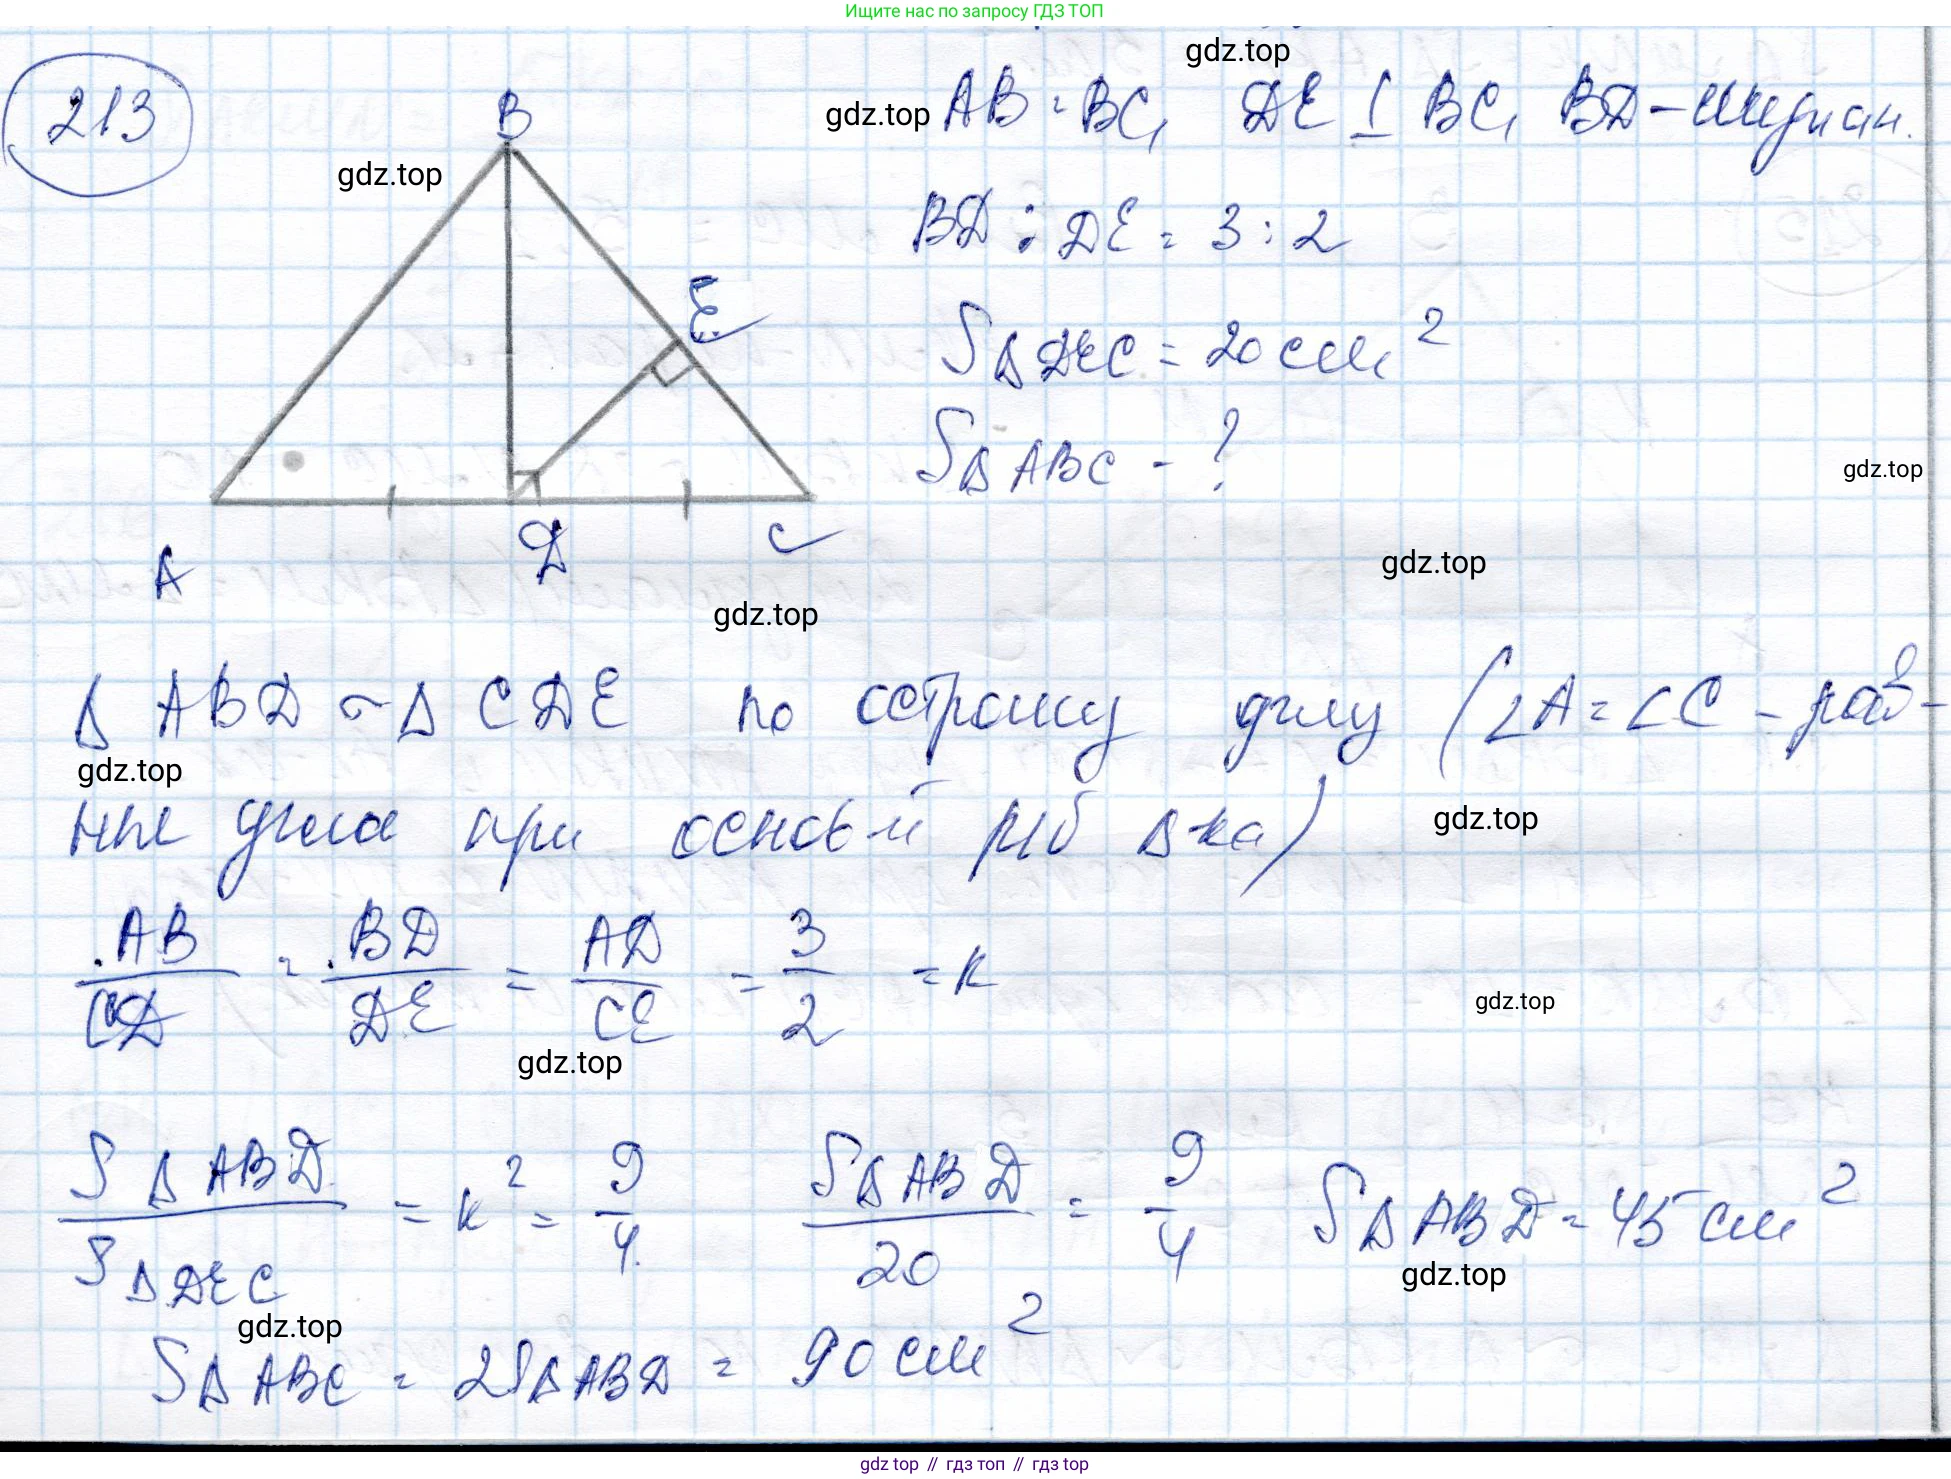 Ищите нас по запросу ГДЗ ТОП
gdz.top
213
B
gdz.top
gdz.top
AB = BC, DE ⊥ BC, BD – медиан.
BD : DE = 3 : 2
E
S△DEC = 20 см²
S△ABC - ?
gdz.top
A
D
C
gdz.top
gdz.top
△ ABD ~ △ CDE по острому углу (∠A = ∠C – рав-
gdz.top
ные угла при основ-и р/б △-ка)
gdz.top
AB/CD = BD/DE = AD/CE = 3/2 = k
gdz.top
gdz.top
S△ABD/S△DEC = k² = 9/4 S△ABD/20 = 9/4 S△ABD = 45 см²
gdz.top
gdz.top
S△ABC = 2S△ABD = 90 см²
gdz top // гдз топ // gdz top